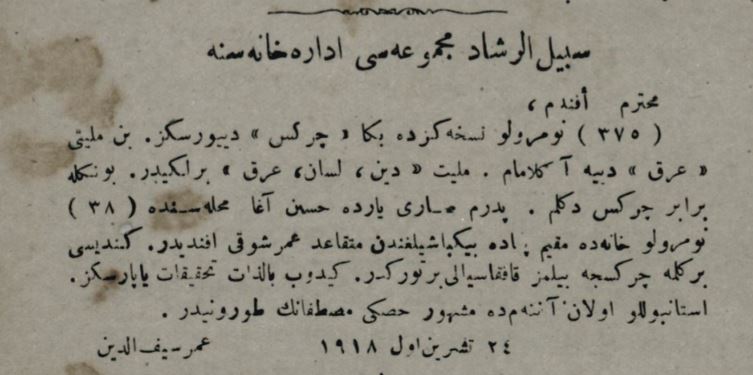 سبیل الرشاد مجموعه‌سی اداره‌خانه‌سنه
محترم افندم،
( ۳۷٥ ) نومرولو نسخه‌كزده بكا « چركس » دییورسكز. بن ملیتی
« عرق » دییه آكلامام . ملیت « دین، لسان، عرق » برلكیدر. بونكله
برابر چركس دكلم . پدرم صاری یارده حسین آغا محله‌سنده ( ۳۸ )
نومرولو خانه‌ده مقیم پیاده بیكباشیلغندن متقاعد عمر شوقی افندیدر. كندیسی
بركلمه چركسجه بیلمز قافقاسیالی بر توركدر. كیدوب بالذات تحقیقات یاپارسكز.
استانبوللو اولان آننه‌م ده مشهور حصكی مصطفانك طورونیدر .
۲٤ تشرین اول ۱۹۱۸ عمر سیف الدین